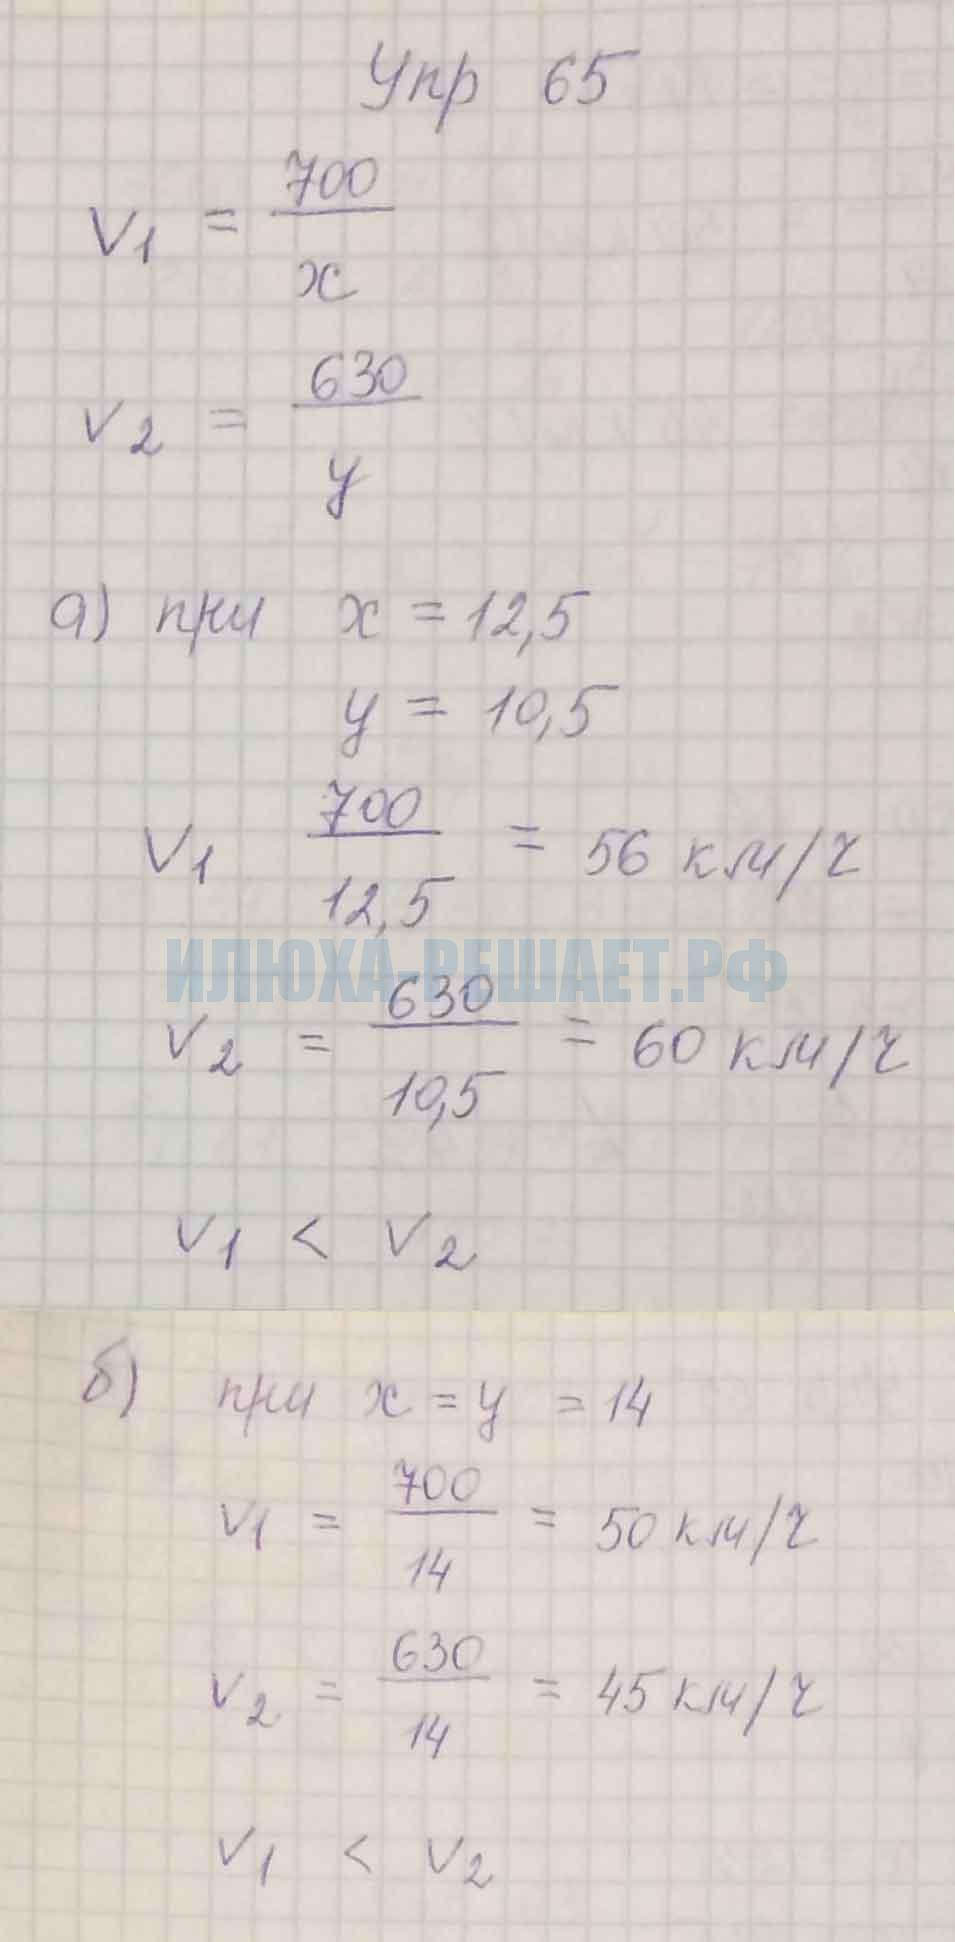 Упр 65
V₁ = 700/x
V₂ = 630/y
а) при x = 12,5
y = 10,5
V₁ 700/12,5 = 56 км/ч
ИЛЮХА-РЕШАЕТ.РФ
V₂ = 630/10,5 = 60 км/ч
V₁ < V₂
б) при x = y = 14
V₁ = 700/14 = 50 км/ч
V₂ = 630/14 = 45 км/ч
V₁ < V₂